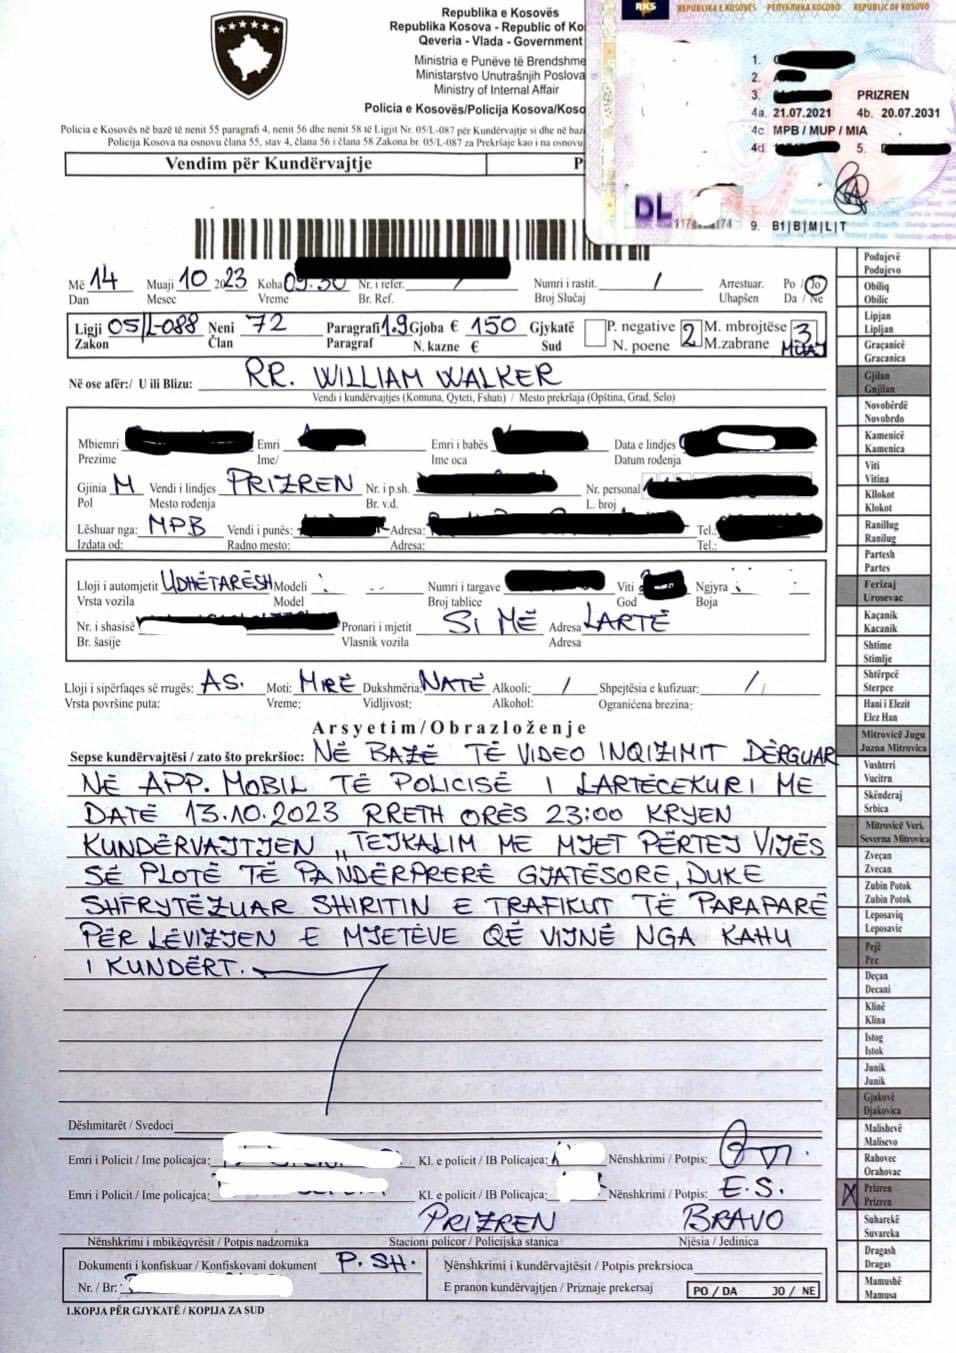 Republika e Kosovës
Republika Kosova - Republic of Ko
Qeveria - Vlada - Government
Ministria e Punëve të Brendshme
Ministarstvo Unutrašnjih Poslova
Ministry of Internal Affair
Policia e Kosovës/Policija Kosova/Koso
Policia e Kosovës në bazë të nenit 55 paragrafi 4, nenit 56 dhe nenit 58 të Ligjit Nr. 05/L-087 për Kundërvajtje si dhe në baz
Policija Kosova na osnovu člana 55, stav 4, člana 56 i člana 58 Zakona br. 05/L-087 za Prekršaje kao i na osnovu
Vendim për Kundërvajtje P
RKS REPUBLIKA E KOSOVËS РЕПУБЛИКА КОСОВО REPUBLIC OF KOSOVO
1.
2.
3. PRIZREN
4a. 21.07.2021 4b. 20.07.2031
4c MPB / MUP / MIA
4d 5.
DL
9. B1|B|M|L|T
Më 14 Muaji 10 2023 Koha 09:30 Nr. i refer. / Numri i rastit. / Arrestuar. Po / Jo
Dan Mesec Vreme Br. Ref. Broj Slučaj Uhapšen Da / Ne
Ligji 05/L-088 Neni 72 Paragrafi 1.9 Gjoba € 150 Gjykatë P. negative 2 M. mbrojtëse 3
Zakon Član Paragraf N. kazne € Sud N. poene M.zabrane MUAJ
Në ose afër:/ U ili Blizu: RR. WILLIAM WALKER
Vendi i kundërvajtjes (Komuna, Qyteti, Fshati) / Mesto prekršaja (Opština, Grad, Selo)
Mbiemri Emri Emri i babës Data e lindjes
Prezime Ime/ Ime oca Datum rođenja
Gjinia M Vendi i lindjes PRIZREN Nr. i p.sh. Nr. personal
Pol Mesto rođenja Br. v.d. L. broj
Lëshuar nga: MPB Vendi i punës: Adresa: Tel.:
Izdata od: Radno mesto: Adresa: Tel.:
Lloji i automjetit UDHËTARËSH Modeli Numri i targave Viti Ngjyra
Vrsta vozila Model Broj tablice God Boja
Nr. i shasisë Pronari i mjetit SI MË Adresa LARTË
Br. šasije Vlasnik vozila Adresa
Lloji i sipërfaqes së rrugës: AS. Moti: MIRË Dukshmëria: NATË Alkooli: / Shpejtësia e kufizuar: /
Vrsta površine puta: Vreme: Vidljivost: Alkohol: Ograničena brezina:
Arsyetim/Obrazloženje
Sepse kundërvajtësi / zato što prekršioc: NË BAZË TË VIDEO INQIZIMIT DËRGUAR
NË APP. MOBIL TË POLICISË I LARTËCEKURI ME
DATË 13.10.2023 RRETH ORËS 23:00 KRYEN
KUNDËRVAJTJEN ,,TEJKALIM ME MJET PËRTEJ VIJËS
SË PLOTË TË PANDËRPRERË GJATËSORE, DUKE
SHFRYTËZUAR SHIRITIN E TRAFIKUT TË PARAPARË
PËR LËVIZJEN E MJETEVE QË VIJNË NGA KAHU
I KUNDËRT.
Dëshmitarët / Svedoci
Emri i Policit / Ime policajca: Kl. e policit / IB Policajca: Nënshkrimi / Potpis:
Emri i Policit / Ime policajca: Kl. e policit / IB Policajca: Nënshkrimi / Potpis: E.S.
PRIZREN BRAVO
Nënshkrimi i mbikëqyrësit / Potpis nadzornika Stacioni policor / Policijska stanica Njësia / Jedinica
Dokumenti i konfiskuar / Konfiskovani dokument P.SH.
Nr. / Br:
Nënshkrimi i kundërvajtësit / Potpis prekrsioca
E pranon kundërvajtjen / Priznaje prekersaj PO / DA JO / NE
1.KOPJA PËR GJYKATË / KOPIJA ZA SUD
Podujevë
Podujevo
Obiliq
Obilic
Lipjan
Lipljan
Graçanicë
Gracanica
Gjilan
Gnjilan
Novobërdë
Novobrdo
Kamenicë
Kamenica
Viti
Vitina
Kllokot
Klokot
Ranillug
Ranilug
Partesh
Partes
Ferizaj
Urosevac
Kaçanik
Kacanik
Shtime
Stimlje
Shtërpcë
Sterpce
Hani i Elezit
Elez Han
Mitrovicë Jugu
Juzna Mitrovica
Vushtrri
Vucitrn
Skënderaj
Srbica
Mitrovicë Veri.
Severna Mitrovica
Zveçan
Zvecan
Zubin Potok
Zubin Potok
Leposaviq
Leposavic
Pejë
Pec
Deçan
Decani
Klinë
Klina
Istog
Istok
Junik
Junik
Gjakovë
Djakovica
Malishevë
Malisevo
Rahovec
Orahovac
X Prizren
Prizren
Suharekë
Suvareka
Dragash
Dragas
Mamushë
Mamusa